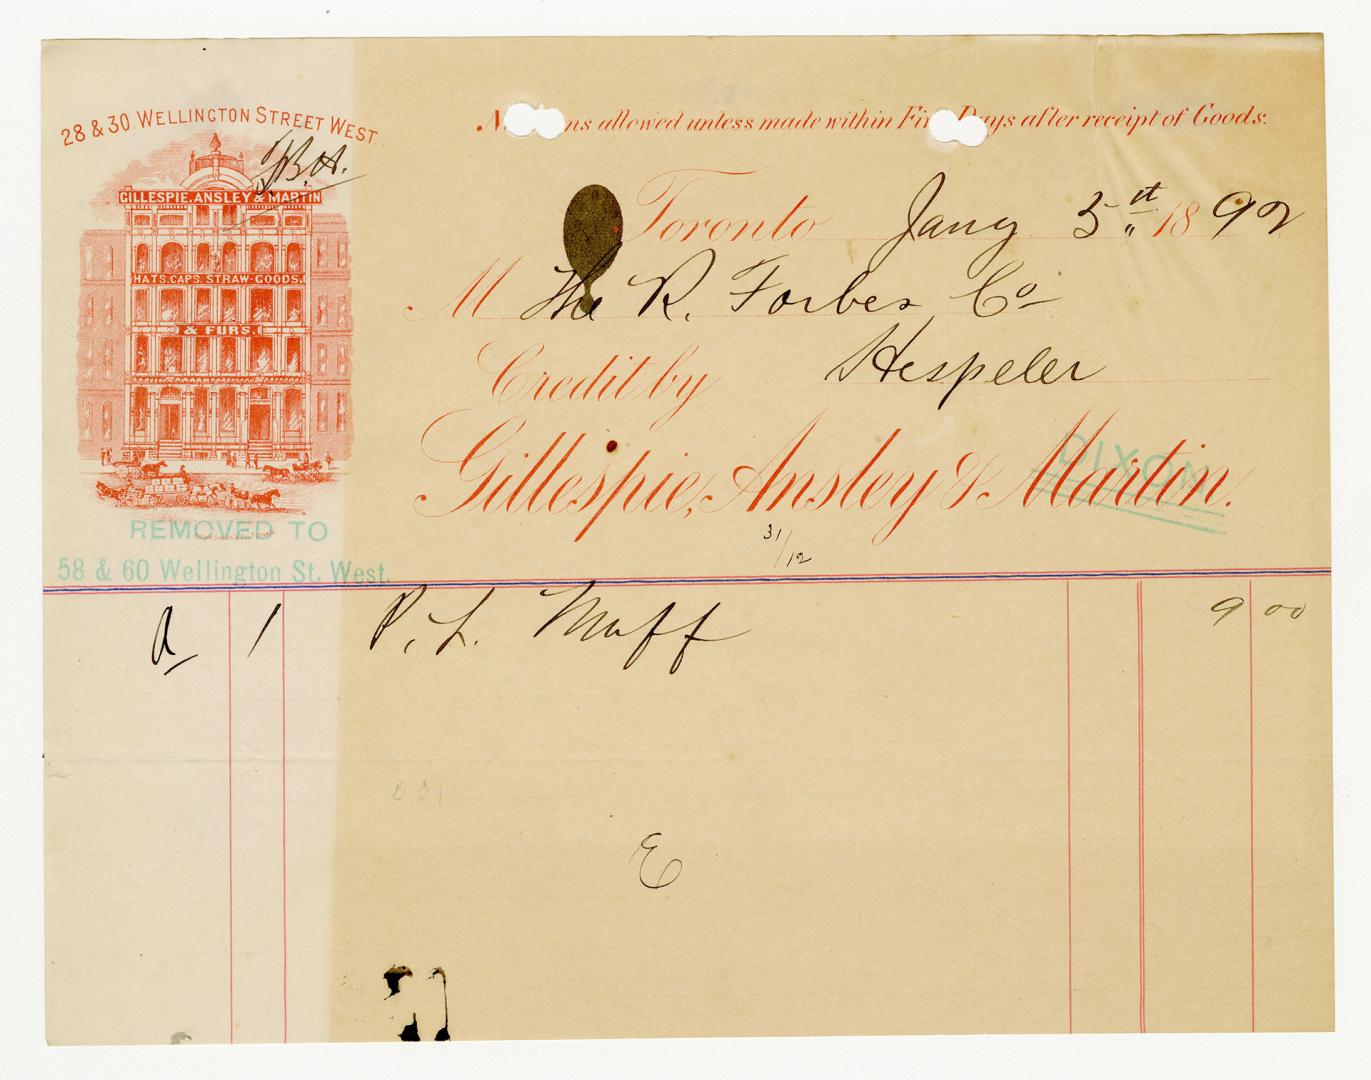 28 & 30 WELLINGTON STREET WEST
GILLESPIE, ANSLEY & MARTIN
HATS. CAPS. STRAW-GOODS.
& FURS.
REMOVED TO
58 & 60 Wellington St. West.
ns allowed unless made within Fi ays after receipt of Goods.
Toronto Jany 5st 1892
M The R. Forbes Co
Hespeler
Credit by
Gillespie, Ansley & Martin.
DIXON
31/12
a 1 P. L. Muff 9 00
E